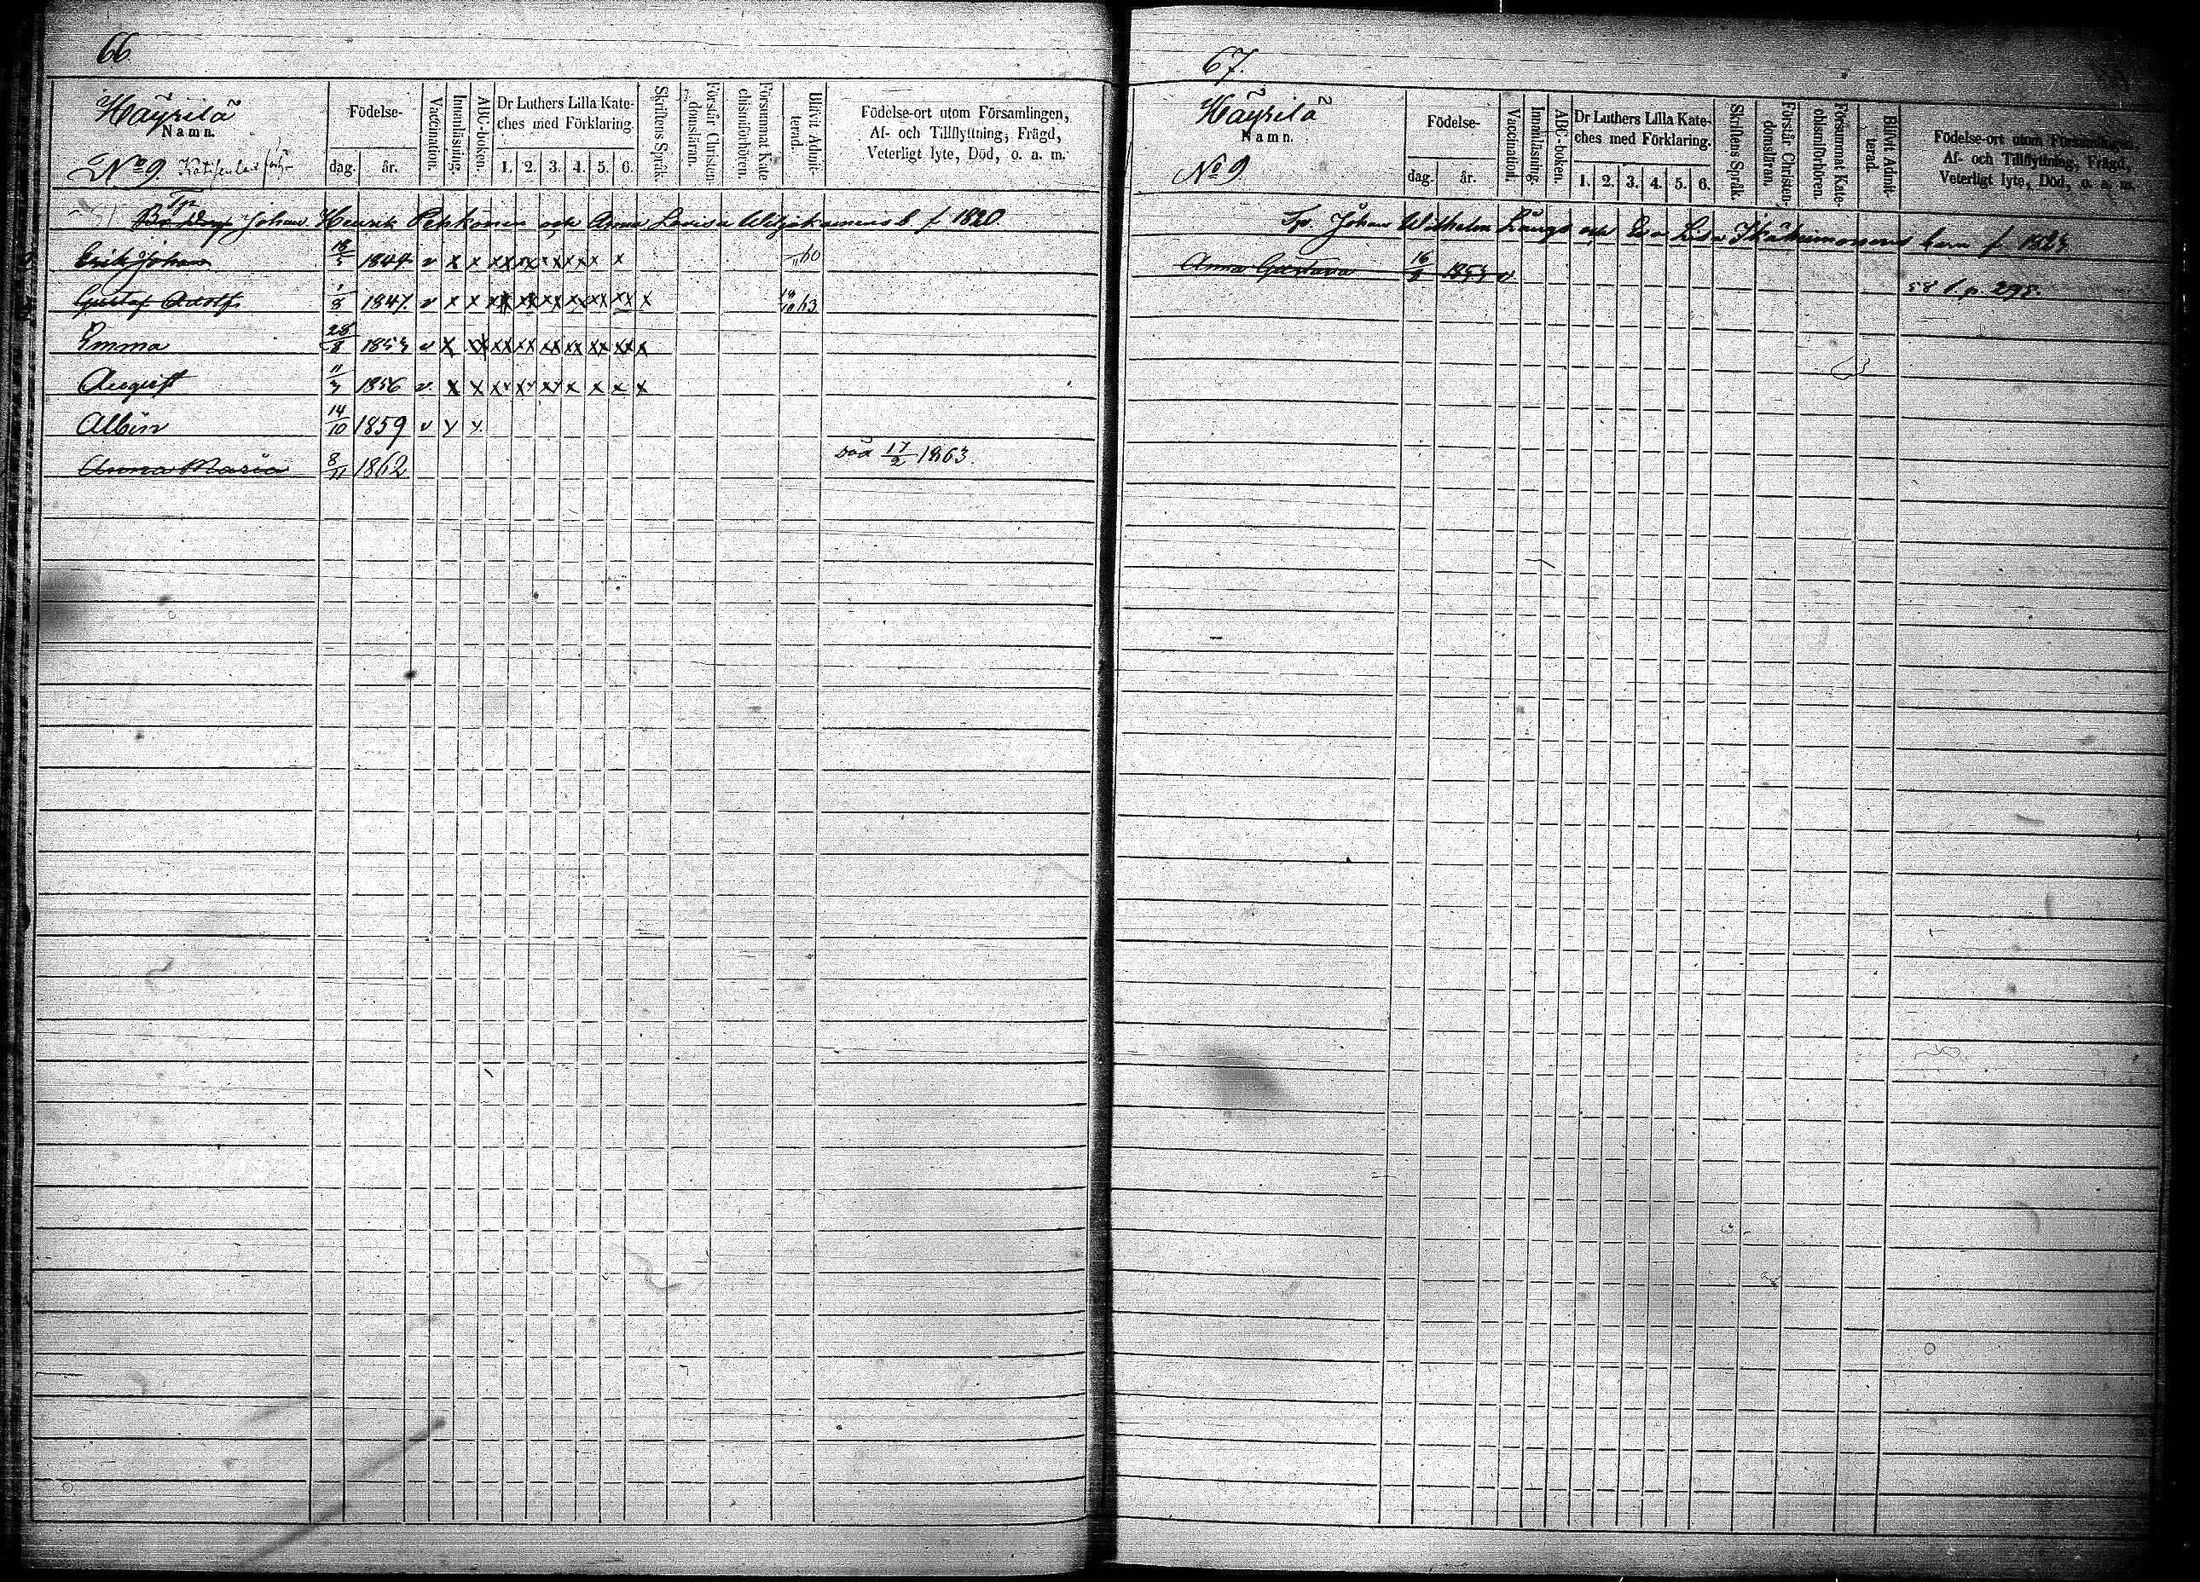 66
Häyrilä
Namn.
No 9.
Födelse-
dag. år.
Vaccination.
Innanläsning.
ABC-boken.
Dr Luthers Lilla Kate-
ches med Förklaring.
1. 2. 3. 4. 5. 6.
Skriftens Språk.
Förstår Christen-
domsläran.
Försummat Kate-
chismiförhören.
Blifvit Admit-
terad.
Födelse-ort utom Församlingen,
Af- och Tillflyttning, Frägd,
Veterligt lyte, Död, o. a. m.
Tp
Johan Henrik Pekkonen och Anna Lovisa b f 1820
Erik Johan 18/5 1844 v x x xx xx xx xx x x /11 60
Gustaf Adolf 1/8 1847 v x x xx xx xx xx xx xx x 14/10 63
Emma 28/8 1853 v x xx xx xx xx xx xx xx x
August 11/3 1856 v x x xx xx xx x x x x
Albin 14/10 1859 v y y
Anna Maria 8/11 1862 död 17/2 1863.
67.
Häyrilä
Namn.
No 9
Födelse-
dag. år.
Vaccination.
Innanläsning.
ABC-boken.
Dr Luthers Lilla Kate-
ches med Förklaring.
1. 2. 3. 4. 5. 6.
Skriftens Språk.
Förstår Christen-
domsläran.
Försummat Kate-
chismiförhören.
Blifvit Admit-
terad.
Födelse-ort utom Församlingen,
Af- och Tillflyttning, Frägd,
Veterligt lyte, Död, o. a. m.
Tp. Johan Wilhelm Lång och Eva Lisa barn f. 1823
Anna Gustava 16/8 1853 v
58 l. p. 295.